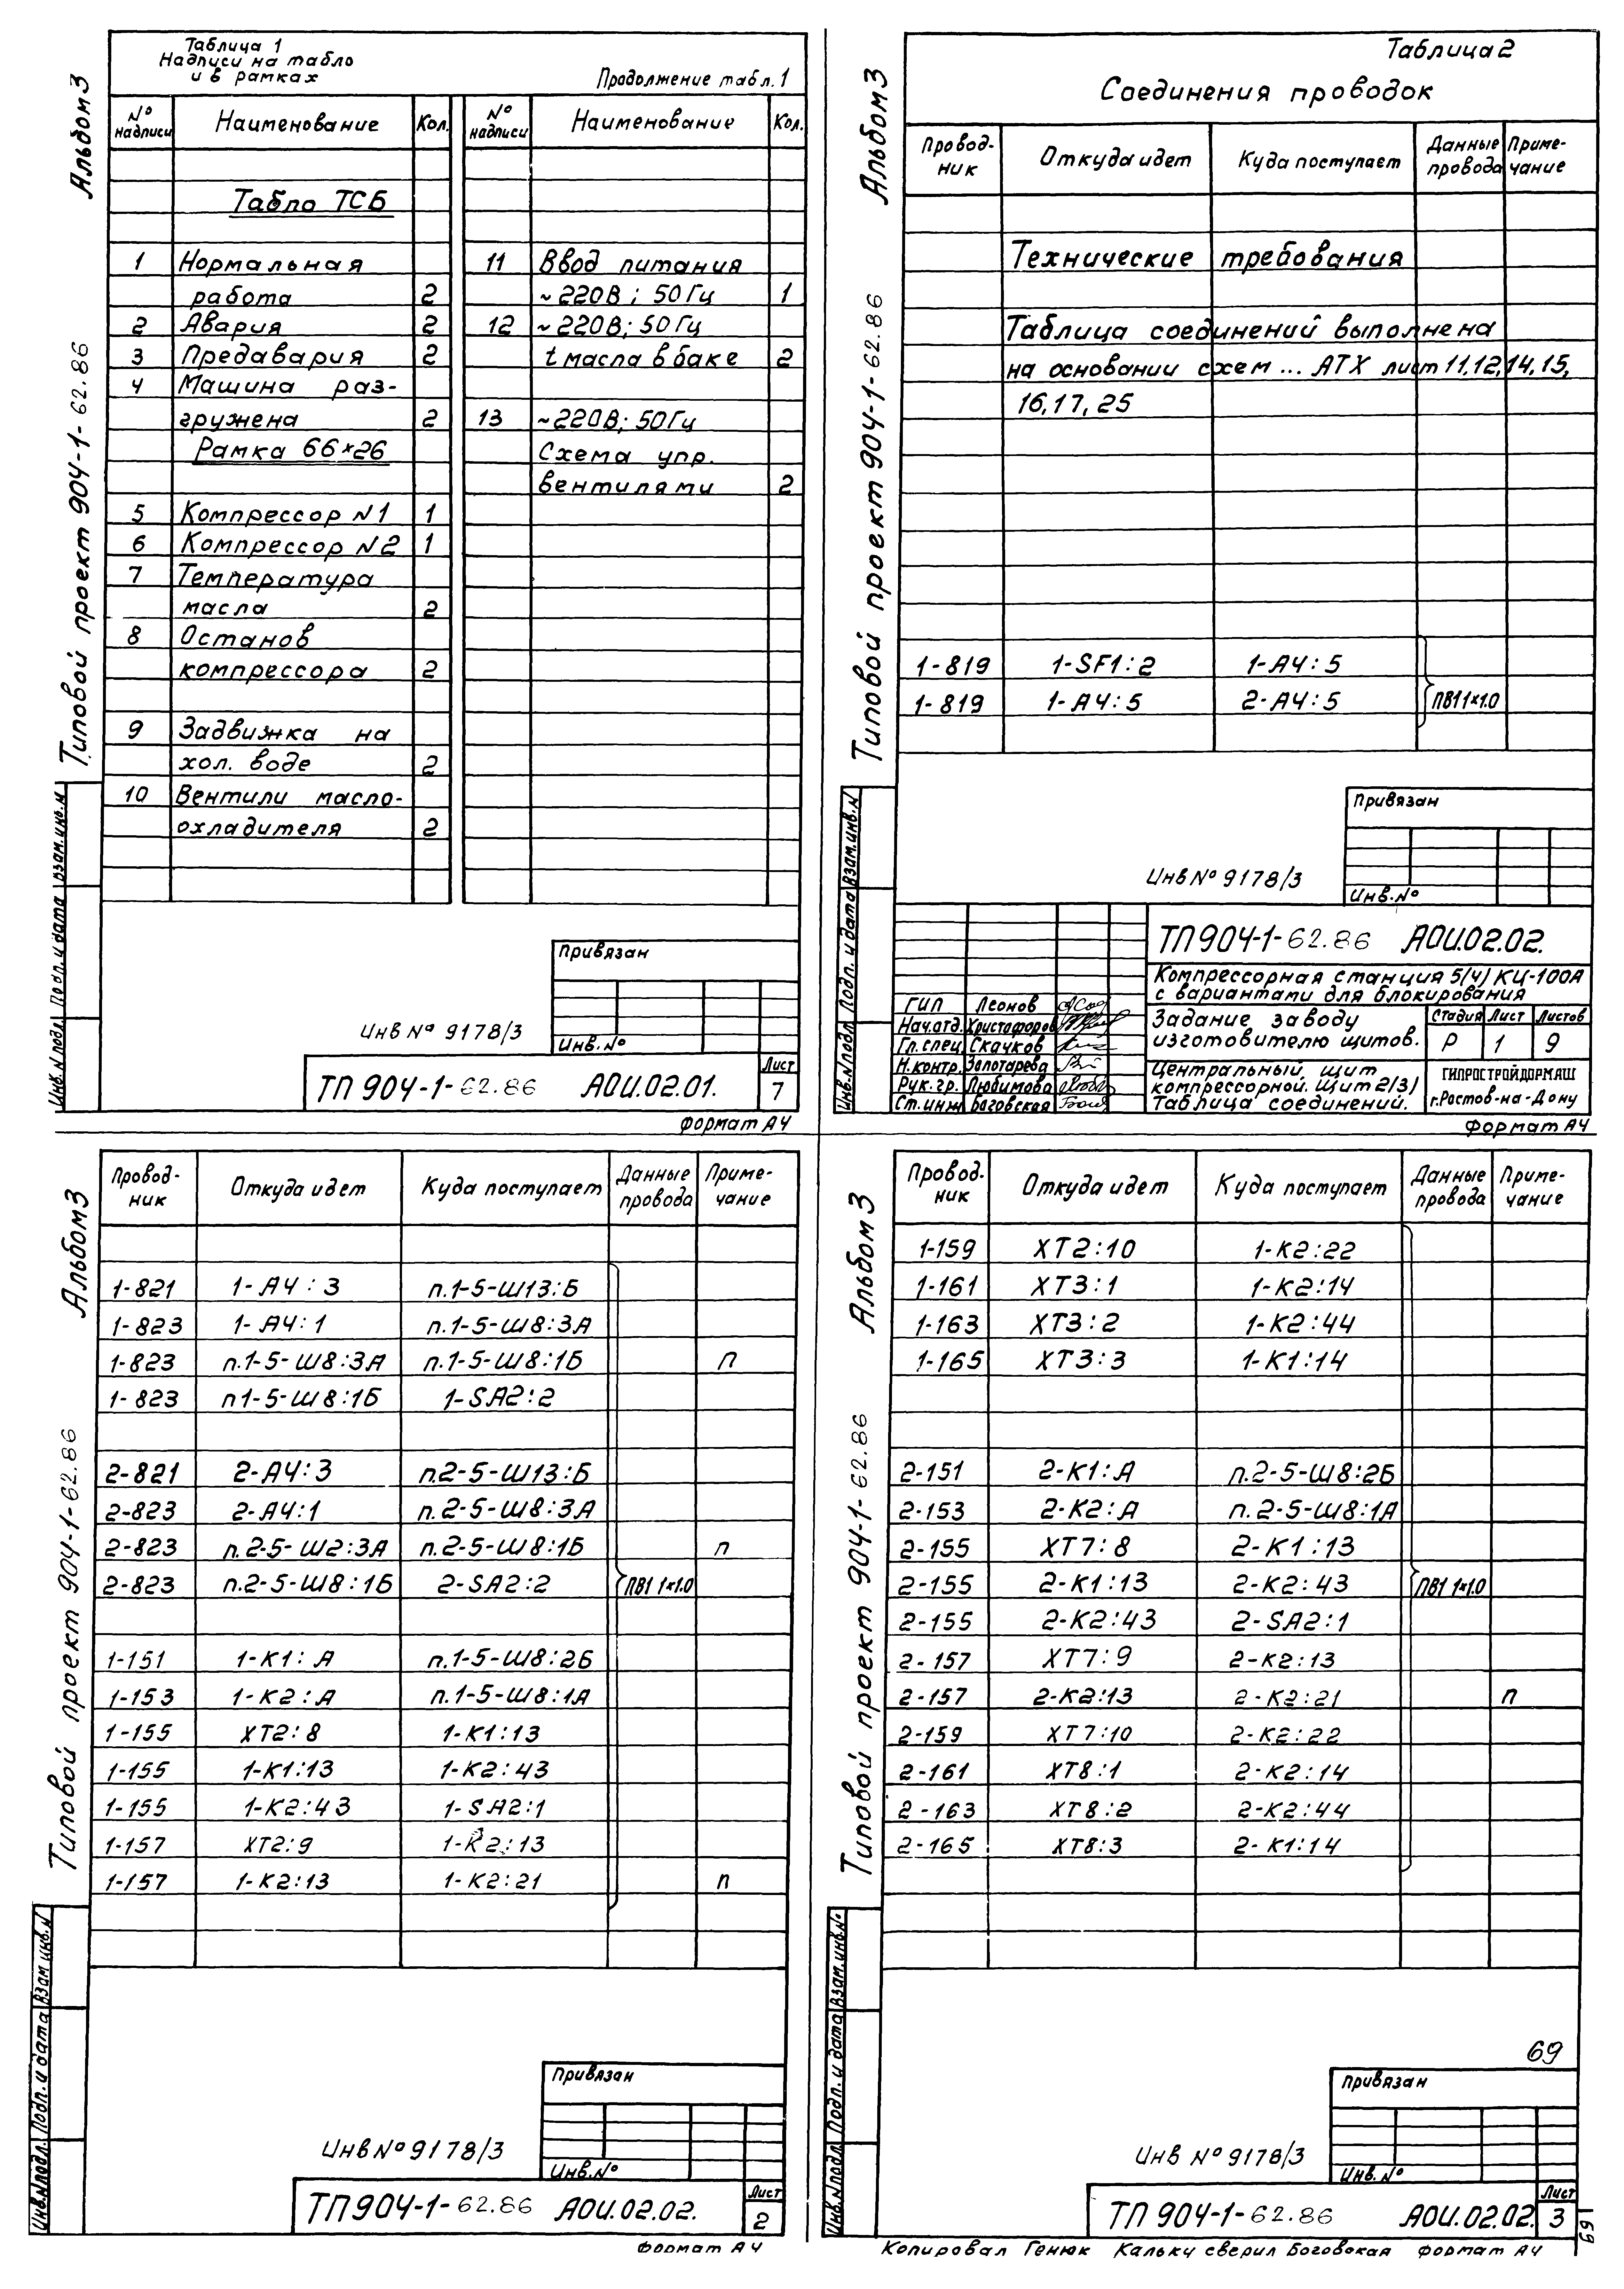 Альбом 3
Типовой проект 904-1-62.86
Таблица 1
Надписи на табло
и в рамках
Продолжение табл. 1
№ надписи Наименование Кол. № надписи Наименование Кол.
Табло ТСБ
1 Нормальная
работа 2
2 Авария 2
3 Предавария 2
4 Машина раз-
гружена 2
Рамка 66×26
5 Компрессор N1 1
6 Компрессор N2 1
7 Температура
масла 2
8 Останов
компрессора 2
9 Задвижка на
хол. воде 2
10 Вентили масло-
охладителя 2
11 Ввод питания
~220В; 50Гц 1
12 ~220В; 50Гц
t масла в баке 2
13 ~220В; 50Гц
Схема упр.
вентилями 2
Привязан
Инв.№
Инв № 9178/3
ТП 904-1-62.86 АОИ.02.01.
Лист
7
Формат А4
Инв.N подл. Подп. и дата Взам.инв.N
Альбом 3
Типовой проект 904-1-62.86
Таблица 2
Соединения проводок
Провод-ник Откуда идет Куда поступает Данные провода Приме-чание
Технические требования
Таблица соединений выполнена
на основании схем ... АТХ лист 11,12,14,15,
16,17,25
1-819 1-SF1:2 1-А4:5
1-819 1-А4:5 2-А4:5
ПВ1 1×1.0
Привязан
Инв.№
Инв № 9178/3
ТП 904-1-62.86 АОИ.02.02.
Компрессорная станция 5(4) КЦ-100А
с вариантами для блокирования
ГИП Леонов
Нач.отд. Христофоров
Гл.спец. Скачков
Н.контр. Золотарева
Рук.гр. Любимова
Ст.инж Боговская
Задание заводу
изготовителю щитов.
Стадия Лист Листов
Р 1 9
Центральный щит
компрессорной. Щит 2(3)
Таблица соединений.
ГИПРОСТРОЙДОРМАШ
г.Ростов-на-Дону
Формат А4
Инв.N подл. Подп. и дата Взам.инв.N
Альбом 3
Типовой проект 904-1-62.86
Провод-ник Откуда идет Куда поступает Данные провода Приме-чание
1-821 1-А4:3 п.1-5-Ш13:Б
1-823 1-А4:1 п.1-5-Ш8:3А
1-823 п.1-5-Ш8:3А п.1-5-Ш8:1Б п
1-823 п1-5-Ш8:1Б 1-SA2:2
2-821 2-А4:3 п.2-5-Ш13:Б
2-823 2-А4:1 п.2-5-Ш8:3А
2-823 п.2-5-Ш2:3А п.2-5-Ш8:1Б п
2-823 п.2-5-Ш8:1Б 2-SA2:2 ПВ1 1×1.0
1-151 1-К1:А п.1-5-Ш8:2Б
1-153 1-К2:А п.1-5-Ш8:1А
1-155 ХТ2:8 1-К1:13
1-155 1-К1:13 1-К2:43
1-155 1-К2:43 1-SA2:1
1-157 ХТ2:9 1-К2:13
1-157 1-К2:13 1-К2:21 п
Привязан
Инв.№
Инв № 9178/3
ТП 904-1-62.86 АОИ.02.02.
Лист
2
Формат А4
Инв.N подл. Подп. и дата Взам инв.N
Альбом 3
Типовой проект 904-1-62.86
Провод-ник Откуда идет Куда поступает Данные провода Приме-чание
1-159 ХТ2:10 1-К2:22
1-161 ХТ3:1 1-К2:14
1-163 ХТ3:2 1-К2:44
1-165 ХТ3:3 1-К1:14
2-151 2-К1:А п.2-5-Ш8:2Б
2-153 2-К2:А п.2-5-Ш8:1А
2-155 ХТ7:8 2-К1:13
2-155 2-К1:13 2-К2:43 ПВ1 1×1.0
2-155 2-К2:43 2-SA2:1
2-157 ХТ7:9 2-К2:13
2-157 2-К2:13 2-К2:21 п
2-159 ХТ7:10 2-К2:22
2-161 ХТ8:1 2-К2:14
2-163 ХТ8:2 2-К2:44
2-165 ХТ8:3 2-К1:14
69
Привязан
Инв.№
Инв № 9178/3
ТП 904-1-62.86 АОИ.02.02.
Лист
3
69
Копировал Генюк Кальку сверил Боговская формат А4
Инв.N подл. Подп. и дата Взам.инв.№